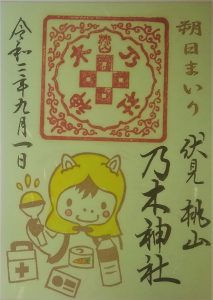 朔日まいり
伏見 桃山
乃木神社
令和二年九月一日